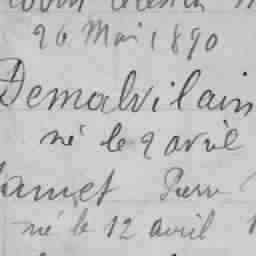 26 Mai 1890
Demalvilain
né le 9 avril
Jamet Pierre
né le 12 avril 1